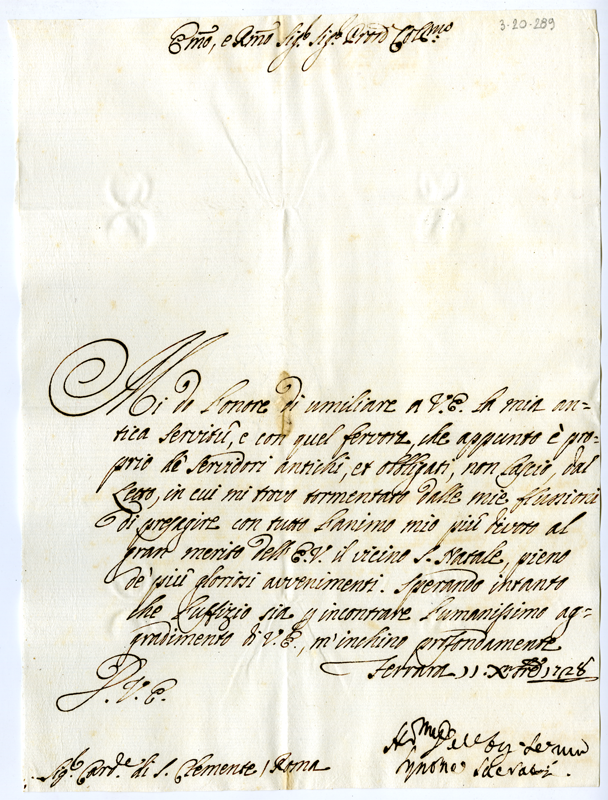 3-20-289
Emo, e Rmo Sigr Sigr Prõn Colmo
Mi do l'onore di umiliare a V.E. la mia an=
tica servitù, e con quel fervore, che appunto è pro=
prio de servidori antichi, et obbligati, non lascio dal
Letto, in cui mi trovo tormentato dalle mie flussioni
di presagire con tutto l'animo mio più divoto al
gran merito dell'E.V. il vicino S. Natale, pieno
de' più gloriosi avvenimenti. Sperando intanto
che l'uffizio sia p incontrare l'umanissimo ag=
gradimento di V.E., m'inchino profondamente
Ferrara 11. Xbre 1728
D. V. E.
Sigr Card.le di S. Clemente / Roma